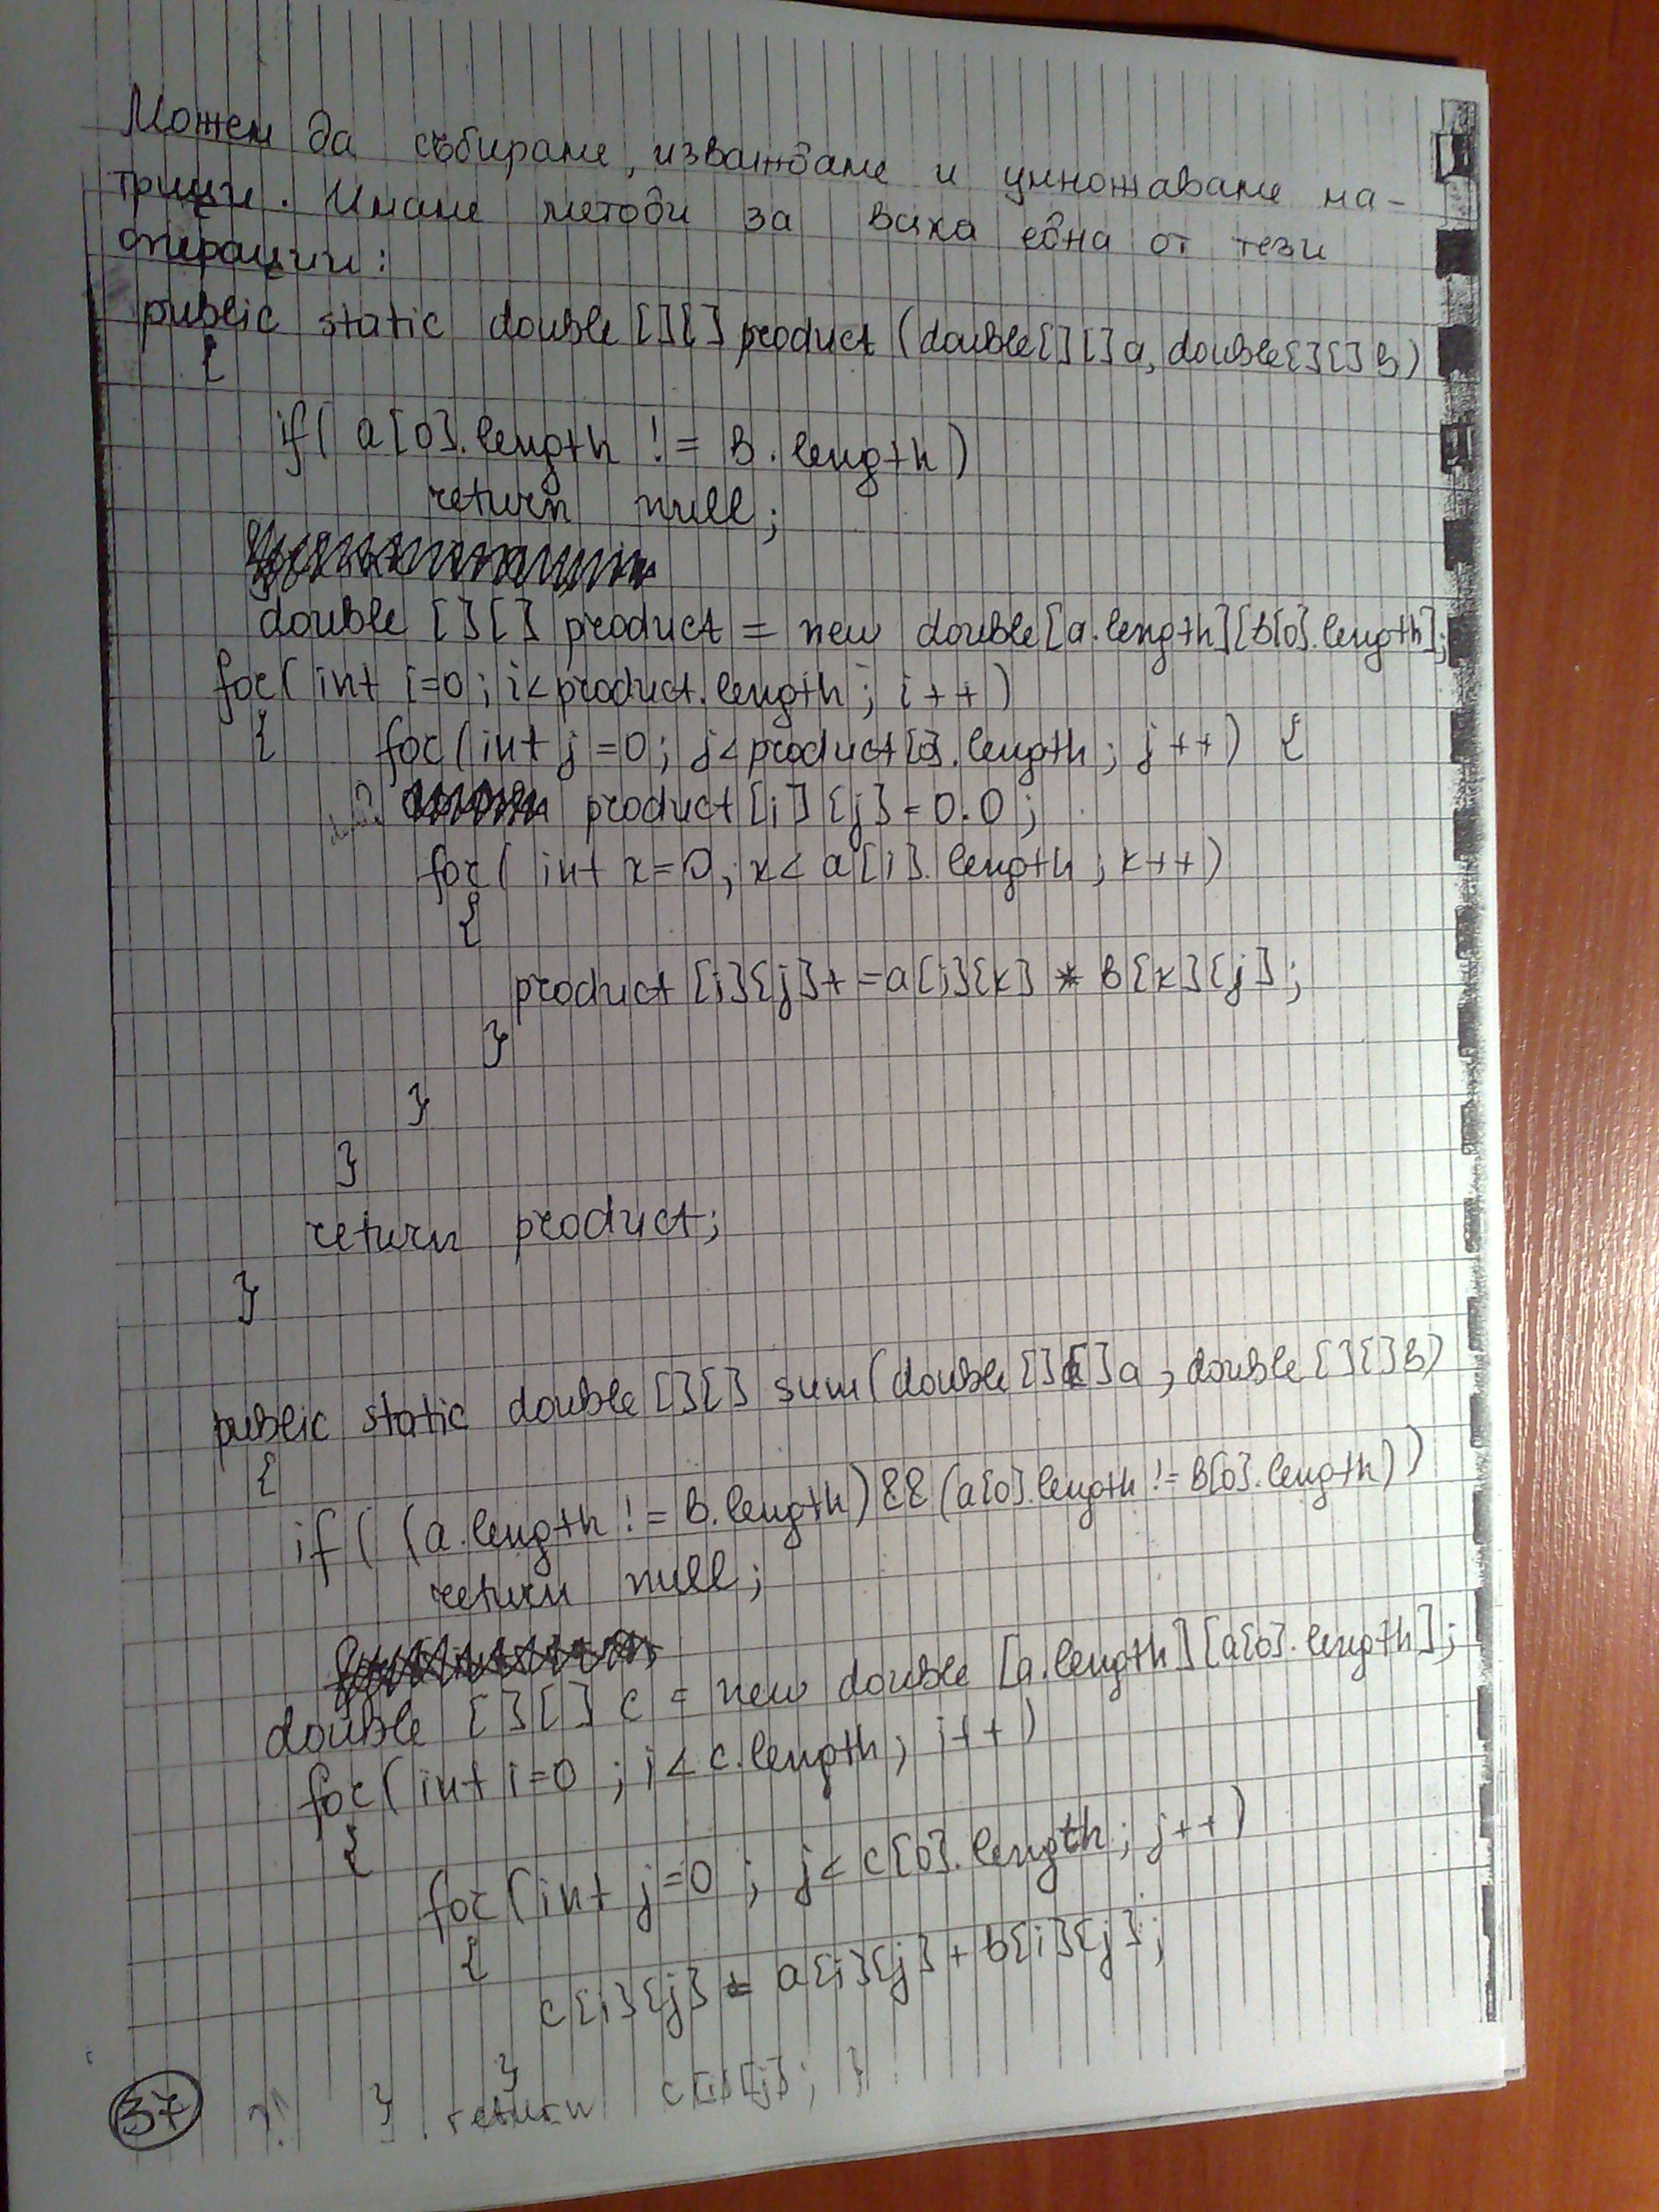 Можем да събираме, изваждаме и умножаваме ма-
трици. Имаме методи за всяка една от тези
операции:
public static double[][] product (double[][] a, double[][] B)
{
if( a[0].length != B.length)
return null;
double [][] product = new double[a.length][B[0].length];
for( int i=0; i<product.length; i++)
{ for(int j=0; j<product[0].length; j++) {
product[i][j]=0.0;
for( int k=0; k< a[i].length; k++)
{
product[i][j]+=a[i][k] * B[k][j];
}
}
}
return product;
}
public static double[][] sum(double[][]a, double[][]B)
{
if( (a.length != B.length)&&(a[0].length != B[0].length))
return null;
double [][] c = new double [a.length][a[0].length];
for( int i=0; i<c.length; i++)
{
for(int j=0; j<c[0].length; j++)
{
c[i][j] = a[i][j]+b[i][j];
}
} return c[i][j]; }
37 ?!